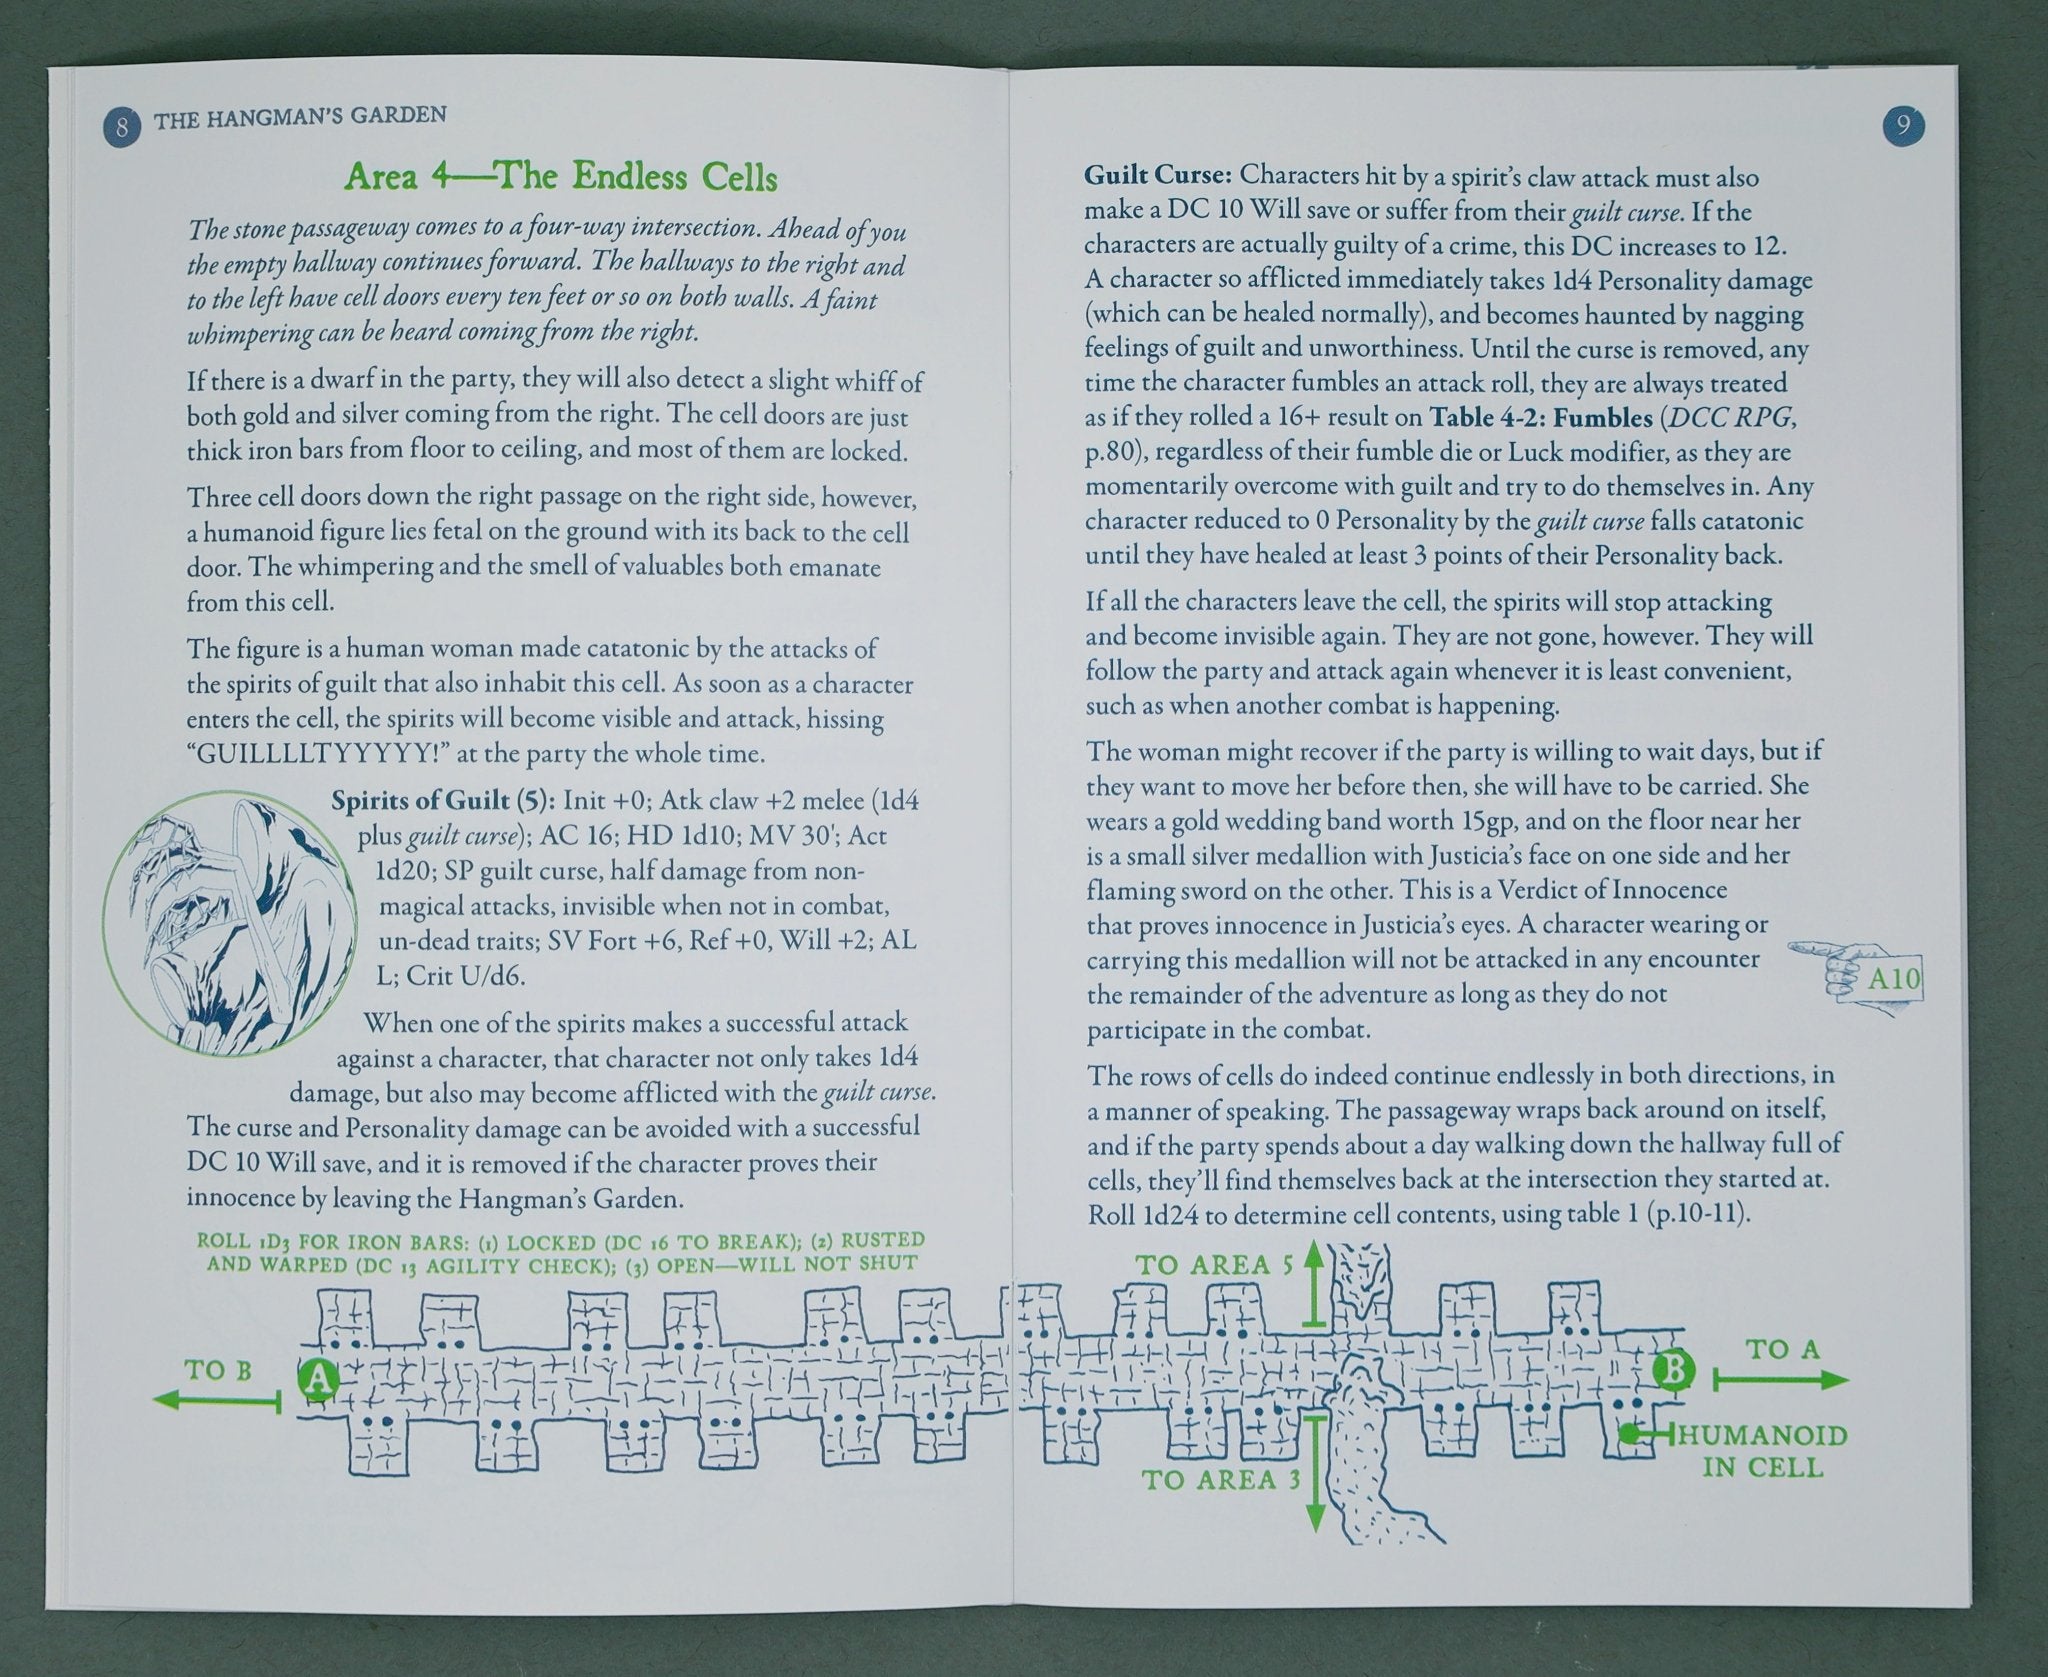 8 THE HANGMAN'S GARDEN
Area 4—The Endless Cells
The stone passageway comes to a four-way intersection. Ahead of you
the empty hallway continues forward. The hallways to the right and
to the left have cell doors every ten feet or so on both walls. A faint
whimpering can be heard coming from the right.
If there is a dwarf in the party, they will also detect a slight whiff of
both gold and silver coming from the right. The cell doors are just
thick iron bars from floor to ceiling, and most of them are locked.
Three cell doors down the right passage on the right side, however,
a humanoid figure lies fetal on the ground with its back to the cell
door. The whimpering and the smell of valuables both emanate
from this cell.
The figure is a human woman made catatonic by the attacks of
the spirits of guilt that also inhabit this cell. As soon as a character
enters the cell, the spirits will become visible and attack, hissing
“GUILLLLTYYYYY!” at the party the whole time.
Spirits of Guilt (5): Init +0; Atk claw +2 melee (1d4
plus guilt curse); AC 16; HD 1d10; MV 30'; Act
1d20; SP guilt curse, half damage from non-
magical attacks, invisible when not in combat,
un-dead traits; SV Fort +6, Ref +0, Will +2; AL
L; Crit U/d6.
When one of the spirits makes a successful attack
against a character, that character not only takes 1d4
damage, but also may become afflicted with the guilt curse.
The curse and Personality damage can be avoided with a successful
DC 10 Will save, and it is removed if the character proves their
innocence by leaving the Hangman's Garden.
ROLL 1D3 FOR IRON BARS: (1) LOCKED (DC 16 TO BREAK); (2) RUSTED
AND WARPED (DC 13 AGILITY CHECK); (3) OPEN—WILL NOT SHUT
TO B
A
9
Guilt Curse: Characters hit by a spirit's claw attack must also
make a DC 10 Will save or suffer from their guilt curse. If the
characters are actually guilty of a crime, this DC increases to 12.
A character so afflicted immediately takes 1d4 Personality damage
(which can be healed normally), and becomes haunted by nagging
feelings of guilt and unworthiness. Until the curse is removed, any
time the character fumbles an attack roll, they are always treated
as if they rolled a 16+ result on Table 4-2: Fumbles (DCC RPG,
p.80), regardless of their fumble die or Luck modifier, as they are
momentarily overcome with guilt and try to do themselves in. Any
character reduced to 0 Personality by the guilt curse falls catatonic
until they have healed at least 3 points of their Personality back.
If all the characters leave the cell, the spirits will stop attacking
and become invisible again. They are not gone, however. They will
follow the party and attack again whenever it is least convenient,
such as when another combat is happening.
The woman might recover if the party is willing to wait days, but if
they want to move her before then, she will have to be carried. She
wears a gold wedding band worth 15gp, and on the floor near her
is a small silver medallion with Justicia's face on one side and her
flaming sword on the other. This is a Verdict of Innocence
that proves innocence in Justicia's eyes. A character wearing or
carrying this medallion will not be attacked in any encounter
the remainder of the adventure as long as they do not
participate in the combat.
A10
The rows of cells do indeed continue endlessly in both directions, in
a manner of speaking. The passageway wraps back around on itself,
and if the party spends about a day walking down the hallway full of
cells, they'll find themselves back at the intersection they started at.
Roll 1d24 to determine cell contents, using table 1 (p.10-11).
TO AREA 5
B
TO A
HUMANOID
IN CELL
TO AREA 3